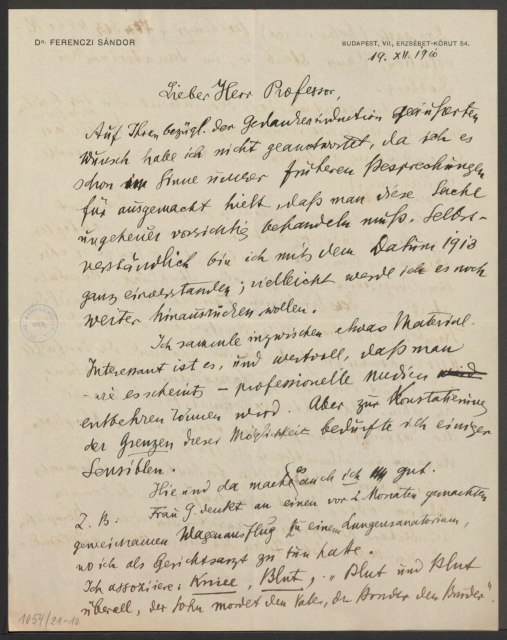 Dr. FERENCZI SÁNDOR
BUDAPEST, VII., ERZSÉBET-KÖRUT 54.
19. XII. 1910
Lieber Herr Professor,
Auf Ihren bezügl. der Gedankeninduction geäußerten
Wunsch habe ich nicht geantwortet, da ich es
schon im Sinne unserer früheren Besprechungen
für ausgemacht hielt, daß man diese Sache
ungeheuer vorsichtig behandeln muß. Selbst-
verständlich bin ich mit dem Datum 1913
ganz einverstanden; vielleicht werde ich es noch
weiter hinausrücken wollen.
Ich sammle inzwischen etwas Material.
Interessant ist es, und wertvoll, daß man
- wie es scheint - professionelle Medien
entbehren können wird. Aber zur Konstatierung
der Grenzen dieser Möglichkeit bedürfte ich einiger
Sensiblen.
Hie und da mache es auch ich gut.
Z. B: Frau G. denkt an einen vor 2 Monaten gemachten
gemeinsamen Wagenausflug zu einem Lungensanatorium,
wo ich als Gerichtsarzt zu tun hatte.
Ich assoziiere: Blut, "Blut und Blut
überall, der Sohn mordet den Vater, der Bruder den Bruder".
1054/21-10